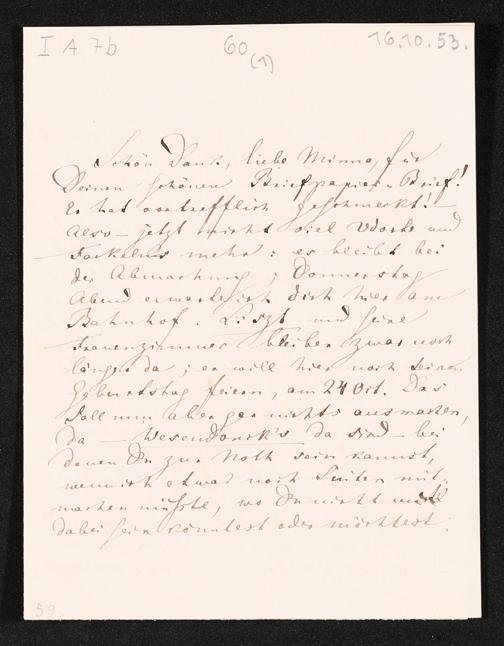 I A 7b
60
(1)
16.10.53.
Schön Dank, liebe Minna, für
Deinen schönen Briefpapier-Brief!
Er hat vortrefflich geschmeckt! -
Also - jetzt nicht viel Worte und
mehr: es bleibt bei
der Abmachung; Donnerstag
Abend erwarte ich dich hier am
Bahnhof. Liszt und seine
Frauenzimmer bleiben zwar noch
länger da; er will hier noch seinen
Geburtstag feiern, am 24 Oct. Das
soll nun aber gar nichts ausmachen,
da - Wesendonck's da sind - bei
denen Du zur Noth sein kannst,
wenn ich etwas noch mit-
machen müsste, wo Du nicht
dabei sein könntest oder möchtest.
59.